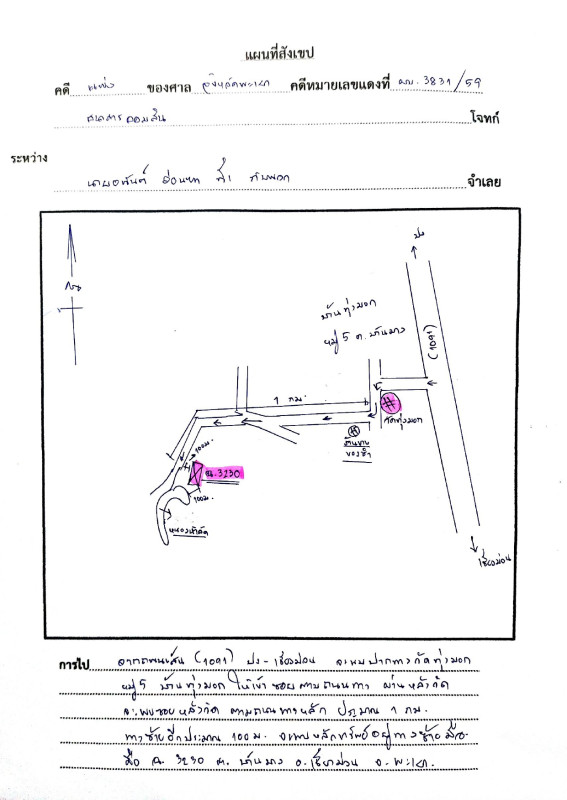 แผนที่สังเขป
คดี แพ่ง ของศาล จังหวัดพะเยา คดีหมายเลขแดงที่ ผบ. 3831/59
ธนาคารออมสิน โจทก์
ระหว่าง
ที่ 1 กับพวก จำเลย
ปง
บ้านทุ่งมอก
หมู่ 5 ต.บ้านมาง
(1091)
1 กม.
วัดทุ่งมอก
ร้านขาย
ของชำ
100 ม.
3230
100 ม.
เชียงม่วน
การไป จากถนนเส้น (1091) ปง-เชียงม่วน จะพบปากทางวัดทุ่งมอก
หมู่ 5 บ้านทุ่งมอก ให้เข้าซอยตามถนนทาง ผ่านหลังวัด
จะพบซอยหลังวัด ตามถนนทางหลัก ประมาณ 1 กม.
ทางซ้ายอีกประมาณ 100 ม. จะพบหลักทรัพย์อยู่ทางซ้ายมือ
คือ 3230 ต.บ้านมาง อ.เชียงม่วน จ.พะเยา